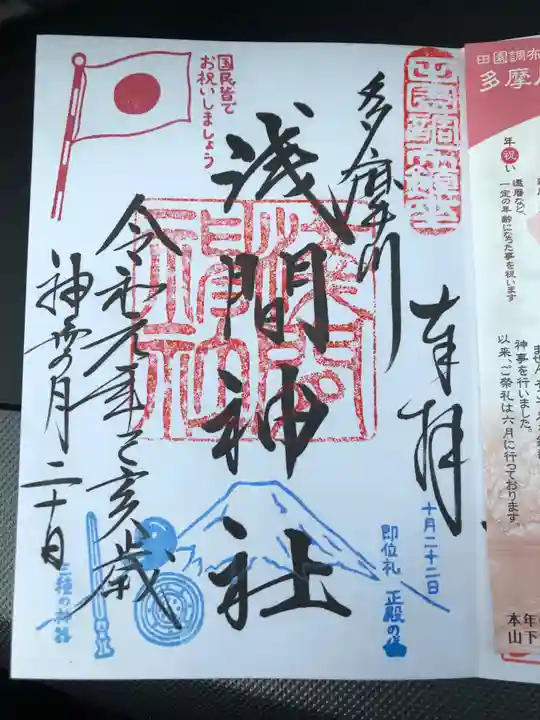 田園調布鎮座
奉拝
多摩川
浅間神社
浅間神社
令和元年己亥歳
神無月二十日
国民皆で
お祝いしましょう
十月二十二日
即位礼 正殿の儀
三種の神器
田園調布
多摩川
年祝い
還暦など、
一定の年齢になった事を祝います
神事を行いました。
以来、ご祭礼は六月に行っております。
本年
山下